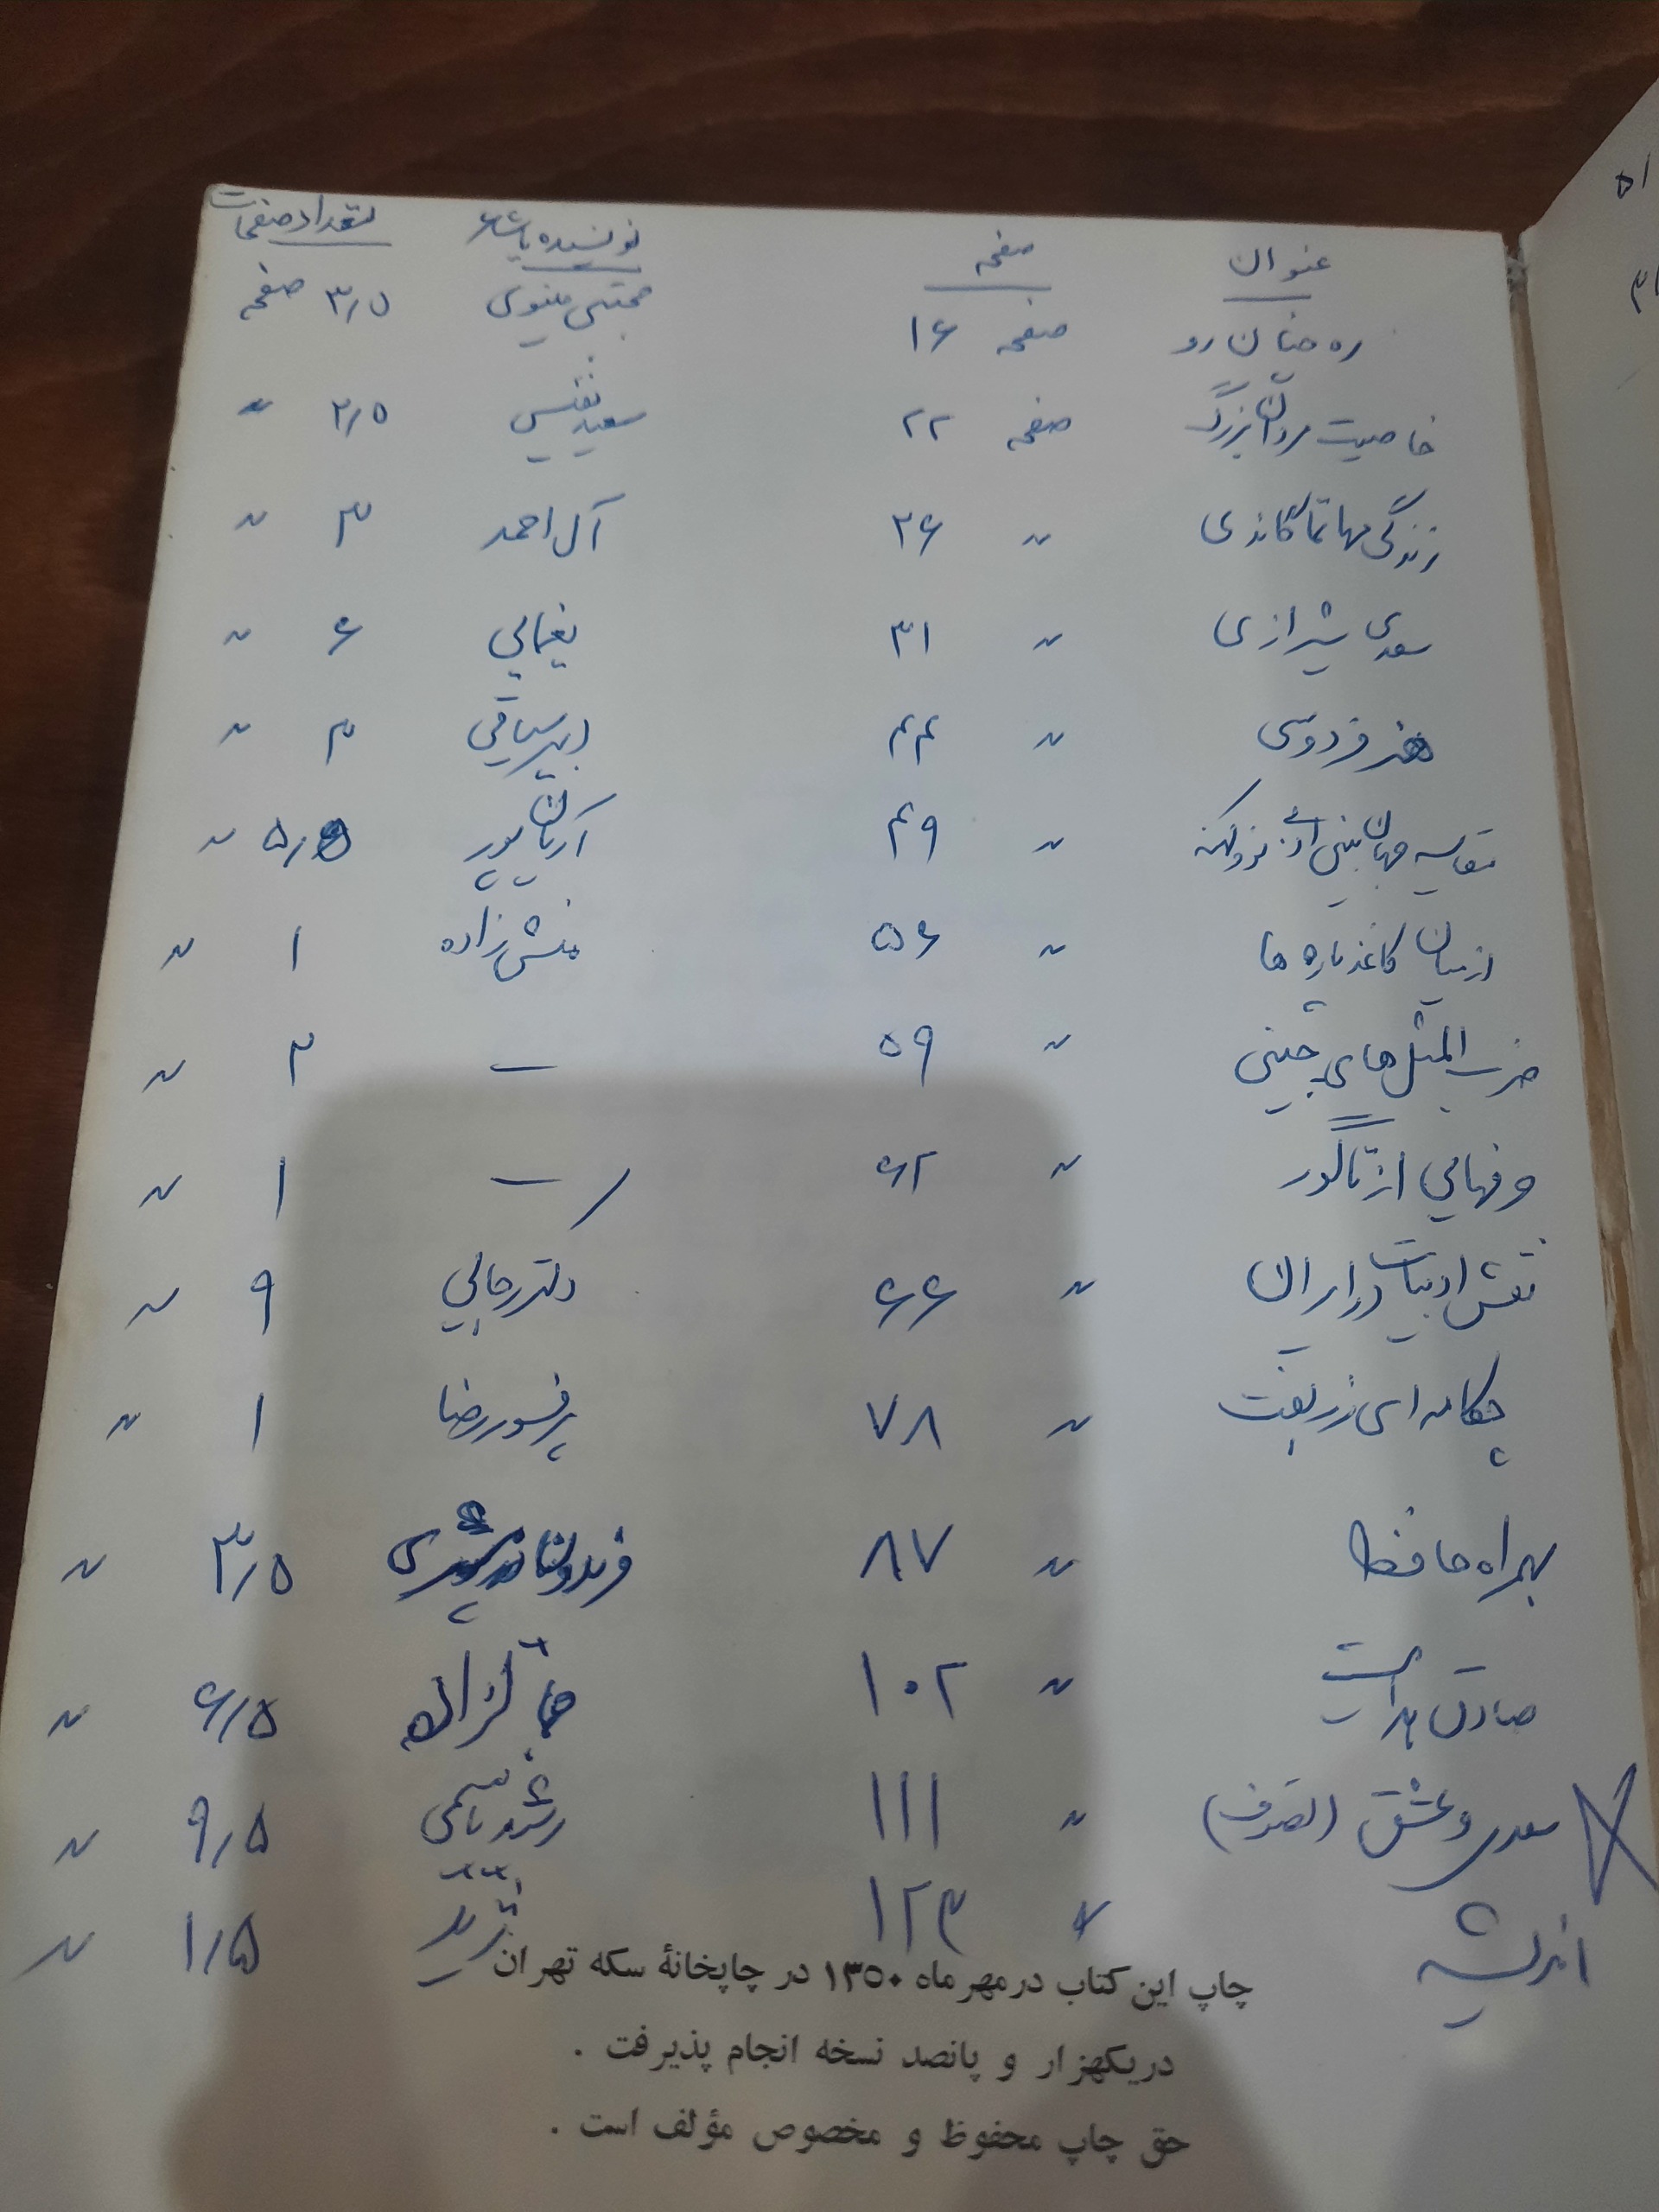 عنوان صفحه نویسنده یا شاعر تعداد صفحات
ره چنان رو صفحه ۱۶ مجتبی مینوی ۳/۵ صفحه
خاصیت مردان بزرگ صفحه ۲۲ سعید نفیسی ۲/۵ "
زندگی مهاتما گاندی " ۲۶ آل احمد ۳ "
سعدی شیرازی " ۳۱ یغمایی ۶ "
هنر فردوسی " ۴۴ دبیرسیاقی ۳ "
مقایسه جهان بینی " ۴۹ آریان پور ۵/۵ "
از میان کاغذ پاره ها " ۵۶ منشی زاده ۱ "
ضرب المثل های چینی " ۵۹ — ۲ "
حرفهایی از تاگور " ۶۲ — ۱ "
نقش ادبیات در ایران " ۶۶ دکتر رجایی ۹ "
چکامه ای زربفت " ۷۸ پرفسور رضا ۱ "
بهمراه حافظ " ۸۷ فریدون ۳/۵ "
صادق هدایت " ۱۰۲ ۶/۵ "
سعدی و عشق (تصوف) " ۱۱۱ رشید یاسمی ۹/۵ "
اندیشه " ۱۲۳ ۱/۵ "
چاپ این کتاب در مهر ماه ۱۳۵۰ در چاپخانهٔ سکه تهران
در یکهزار و پانصد نسخه انجام پذیرفت .
حق چاپ محفوظ و مخصوص مؤلف است .